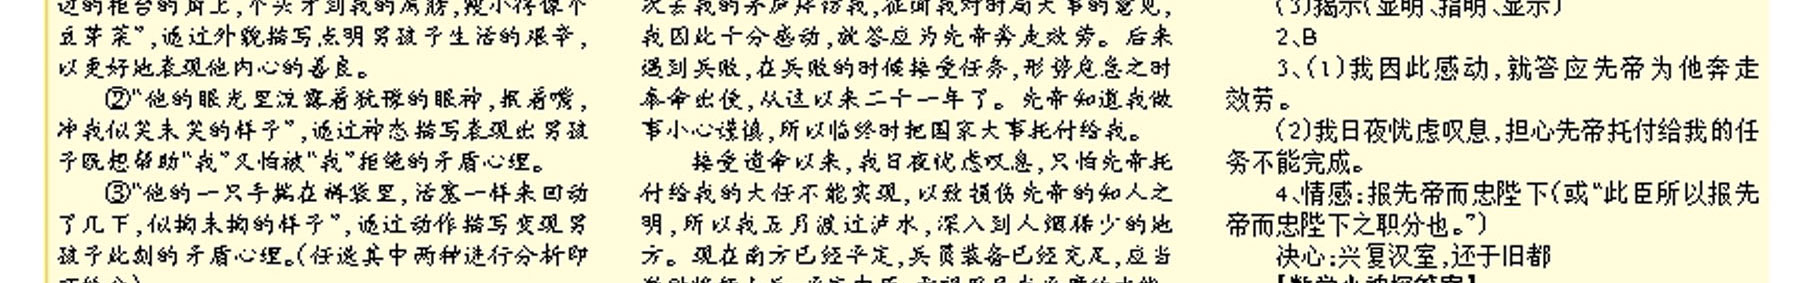 豆芽菜”,通过外貌描写点明男孩子生活的艰辛,
以更好地表现他内心的善良。
②“他的眼光里流露着犹豫的眼神,抿着嘴,
冲我似笑未笑的样子”,通过神态描写表现出男孩
子既想帮助“我”又怕被“我”拒绝的矛盾心理。
③“他的一只手揣在裤袋里,活塞一样来回动
了几下,似掏未掏的样子”,通过动作描写变现男
孩子此刻的矛盾心理。(任选其中两种进行分析即
次去我的茅庐拜访我,征询我对时局大事的意见,
我因此十分感动,就答应为先帝奔走效劳。后来
遇到失败,在兵败的时候接受任务,形势危急之时
奉命出使,从这以来二十一年了。先帝知道我做
事小心谨慎,所以临终时把国家大事托付给我。
接受遗命以来,我日夜忧虑叹息,只怕先帝托
付给我的大任不能实现,以致损伤先帝的知人之
明,所以我五月渡过泸水,深入到人烟稀少的地
方。现在南方已经平定,兵员装备已经充足,应当
(3)揭示(显明、指明、显示)
2、B
3、(1)我因此感动,就答应先帝为他奔走
效劳。
(2)我日夜忧虑叹息,担心先帝托付给我的任
务不能完成。
4、情感:报先帝而忠陛下(或“此臣所以报先
帝而忠陛下之职分也。”)
决心:兴复汉室,还于旧都